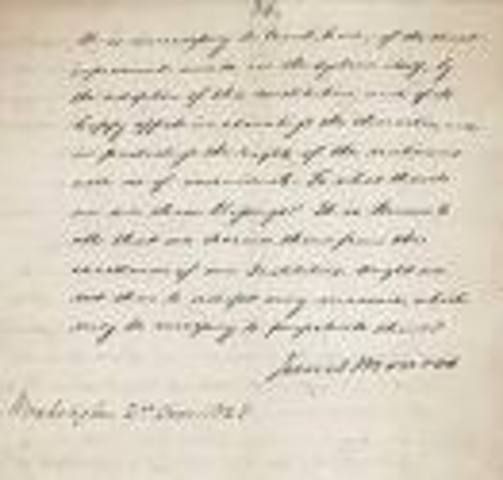 It is unnecessary to treat here, of the vast
improvement made in the system itself, by
the adoption of this constitution and of its
happy effect in elevating the character, and
in protecting the rights of the nation as
well as of individuals. To what then do
we owe these blessings? It is known to
all that we derive them from the
excellence of our Institutions. Ought we
not then to adopt every measure which
may be necessary to perpetuate them?
James Monroe
Washington 2nd Decr.